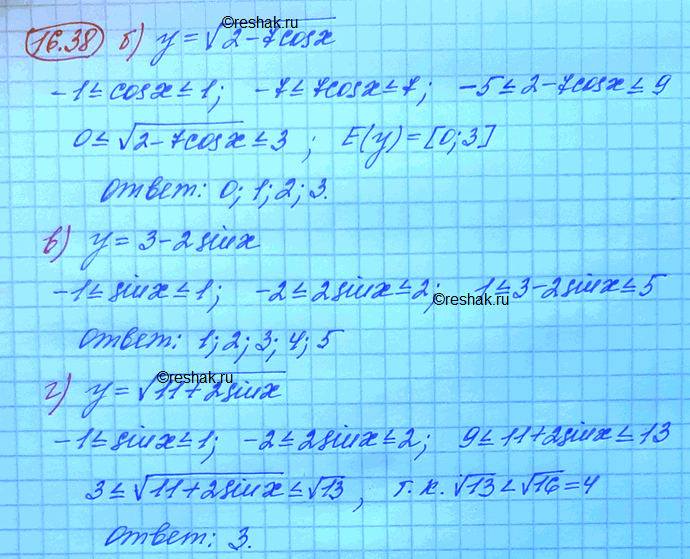 ©reshak.ru
16.38 б) y = √(2-7cosx)
-1≤cosx≤1; -7≤7cosx≤7; -5≤2-7cosx≤9
0≤√(2-7cosx)≤3; E(y)=[0;3]
Ответ: 0; 1; 2; 3.
в) y = 3-2sinx
-1≤sinx≤1; -2≤2sinx≤2; 1≤3-2sinx≤5
©reshak.ru
Ответ: 1; 2; 3; 4; 5
©reshak.ru
г) y = √(11+2sinx)
-1≤sinx≤1; -2≤2sinx≤2; 9≤11+2sinx≤13
3≤√(11+2sinx)≤√13, т.к. √13<√16=4
Ответ: 3.